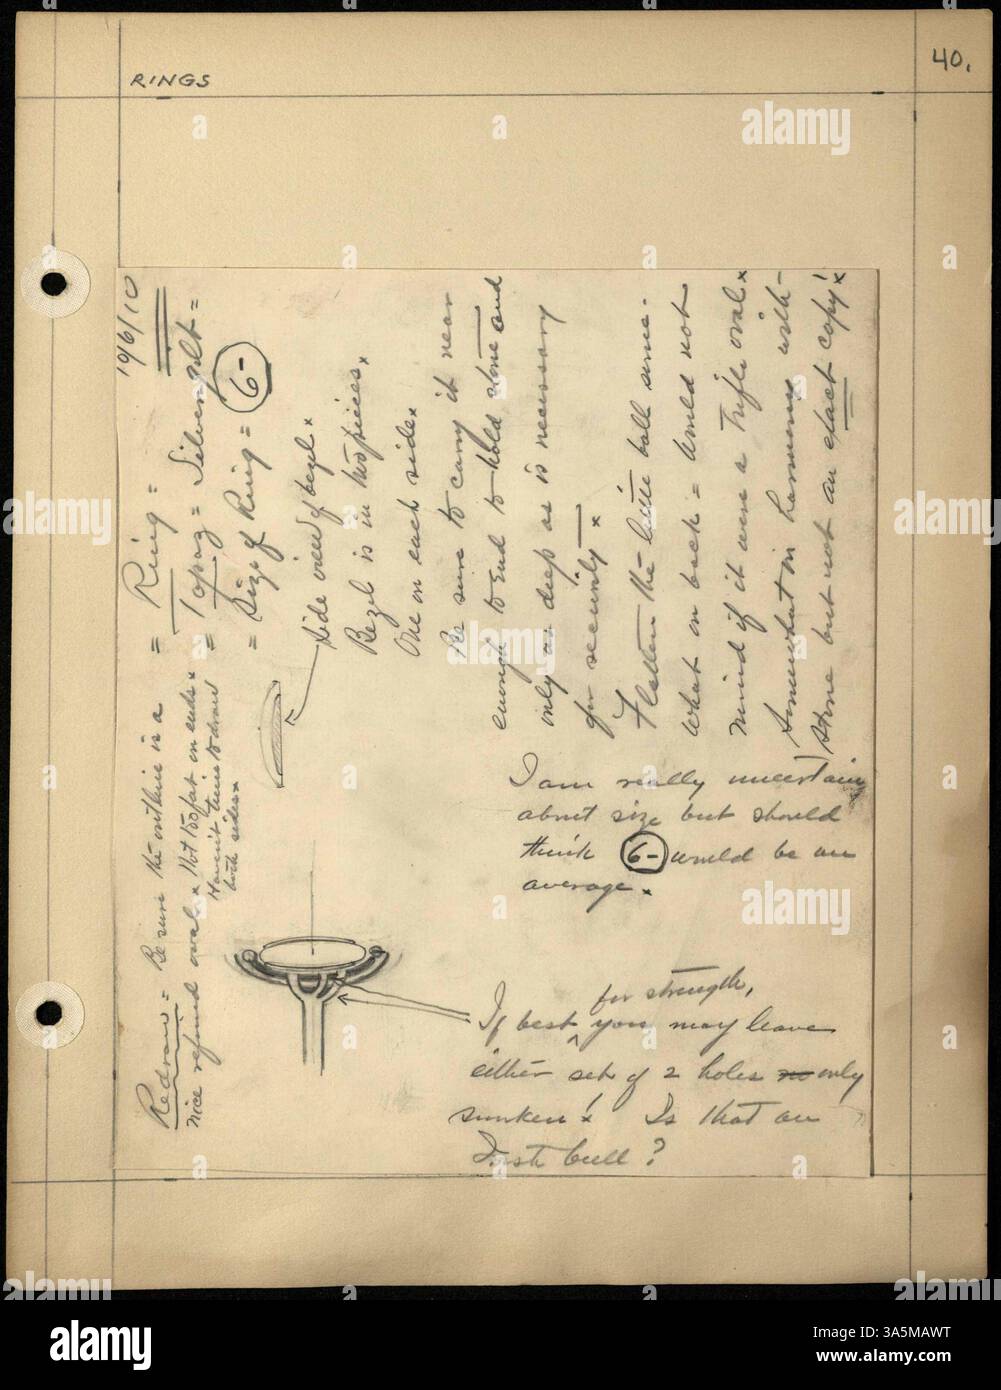 RINGS
40.
1916/10
= Ring =
= Topaz = Silver gilt =
= Size of Ring = 6-
Side view of bezel.x
Bezel is in two pieces.x
One on each side.x
Be sure to carry it near
enough to end to hold stone and
only as deep as is necessary
for security x
Flatten the little ball some-
what on back = Would not
mind if it were a trifle oval.x
Somewhat in harmony with
stone but not an exact copy!x
Redraw = Be sure the outline is a
nice refined oval.x Not too fat on ends.x
Haven't time to draw
both sides.x
I am really uncertain
about size but should
think 6- would be an
average.x
for strength,
If best ^ you may leave
either set of 2 holes no only
sunken!x Is that an
Irish bull?
alamy
alamy
Image ID: 3A5MAWT
www.alamy.com